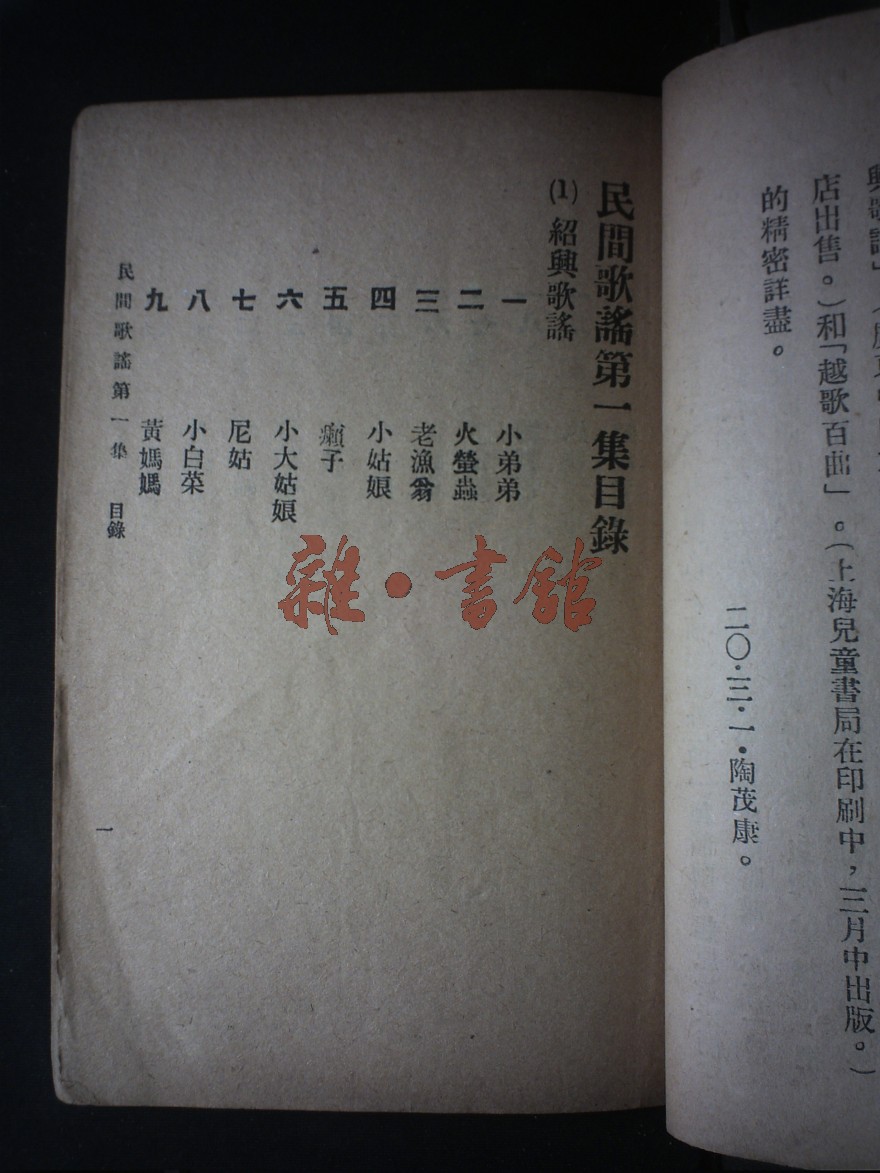 店出售。)和「越歌百曲」。(上海兒童書局在印刷中，三月中出版。)
的精密詳盡。
二〇·三·一·陶茂康。
民間歌謠第一集目錄
(1) 紹興歌謠
一 小弟弟
二 火螢蟲
三 老漁翁
四 小姑娘
五 癩子
六 小大姑娘
七 尼姑
八 小白菜
九 黃媽媽
民間歌謠第一集 目錄
一
雜·書館